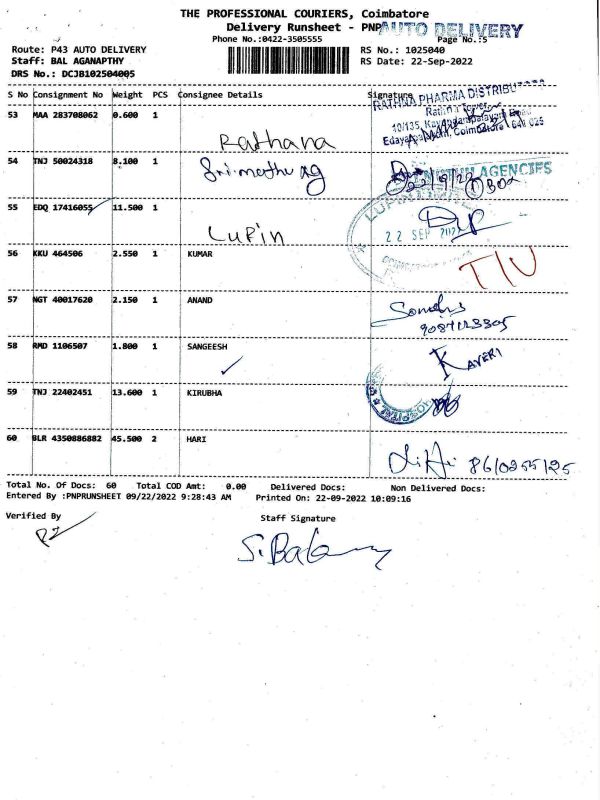 THE PROFESSIONAL COURIERS, Coimbatore
Delivery Runsheet - PNPAUTO DELIVERY
Phone No.:0422-3505555 Page No.:5
Route: P43 AUTO DELIVERY RS No.: 1025040
Staff: BAL AGANAPTHY RS Date: 22-Sep-2022
DRS No.: DCJB102504005
S No Consignment No Weight PCS Consignee Details Signature
RATHNA PHARMA DISTRIBUTORS
53 MAA 283708062 0.600 1
Rathana
54 TNJ 50024318 8.100 1 Srimathu ag
AGENCIES
55 EDQ 17416055 11.500 1
Lupin
LUPIN
22 SEP 202
56 KKU 464506 2.550 1 KUMAR
57 NGT 40017620 2.150 1 ANAND
58 RMD 1106507 1.800 1 SANGEESH KAVERI
59 TNJ 22402451 13.600 1 KIRUBHA
60 BLR 4350886882 45.500 2 HARI
Total No. Of Docs: 60 Total COD Amt: 0.00 Delivered Docs: Non Delivered Docs:
Entered By :PNPRUNSHEET 09/22/2022 9:28:43 AM Printed On: 22-09-2022 10:09:16
Verified By Staff Signature
S.Bala